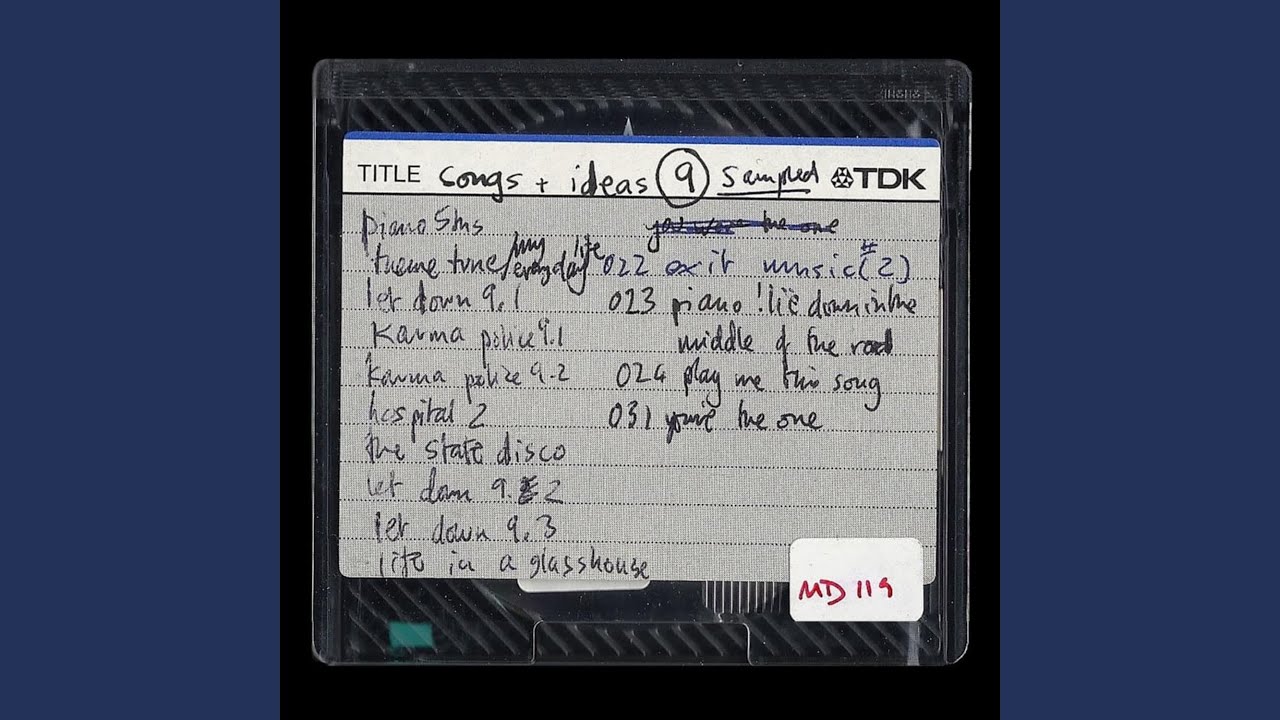 TITLE songs + ideas 9 sampled TDK
piano 5ths
theme tune/my everyday life
let down 9.1
karma police 9.1
karma police 9.2
hospital 2
the state disco
let down 9.2
let down 9.3
life in a glasshouse
the one
022 exit music (#2)
023 piano ! lie down in the
middle of the road
024 play me this song
031 you're the one
MD 119